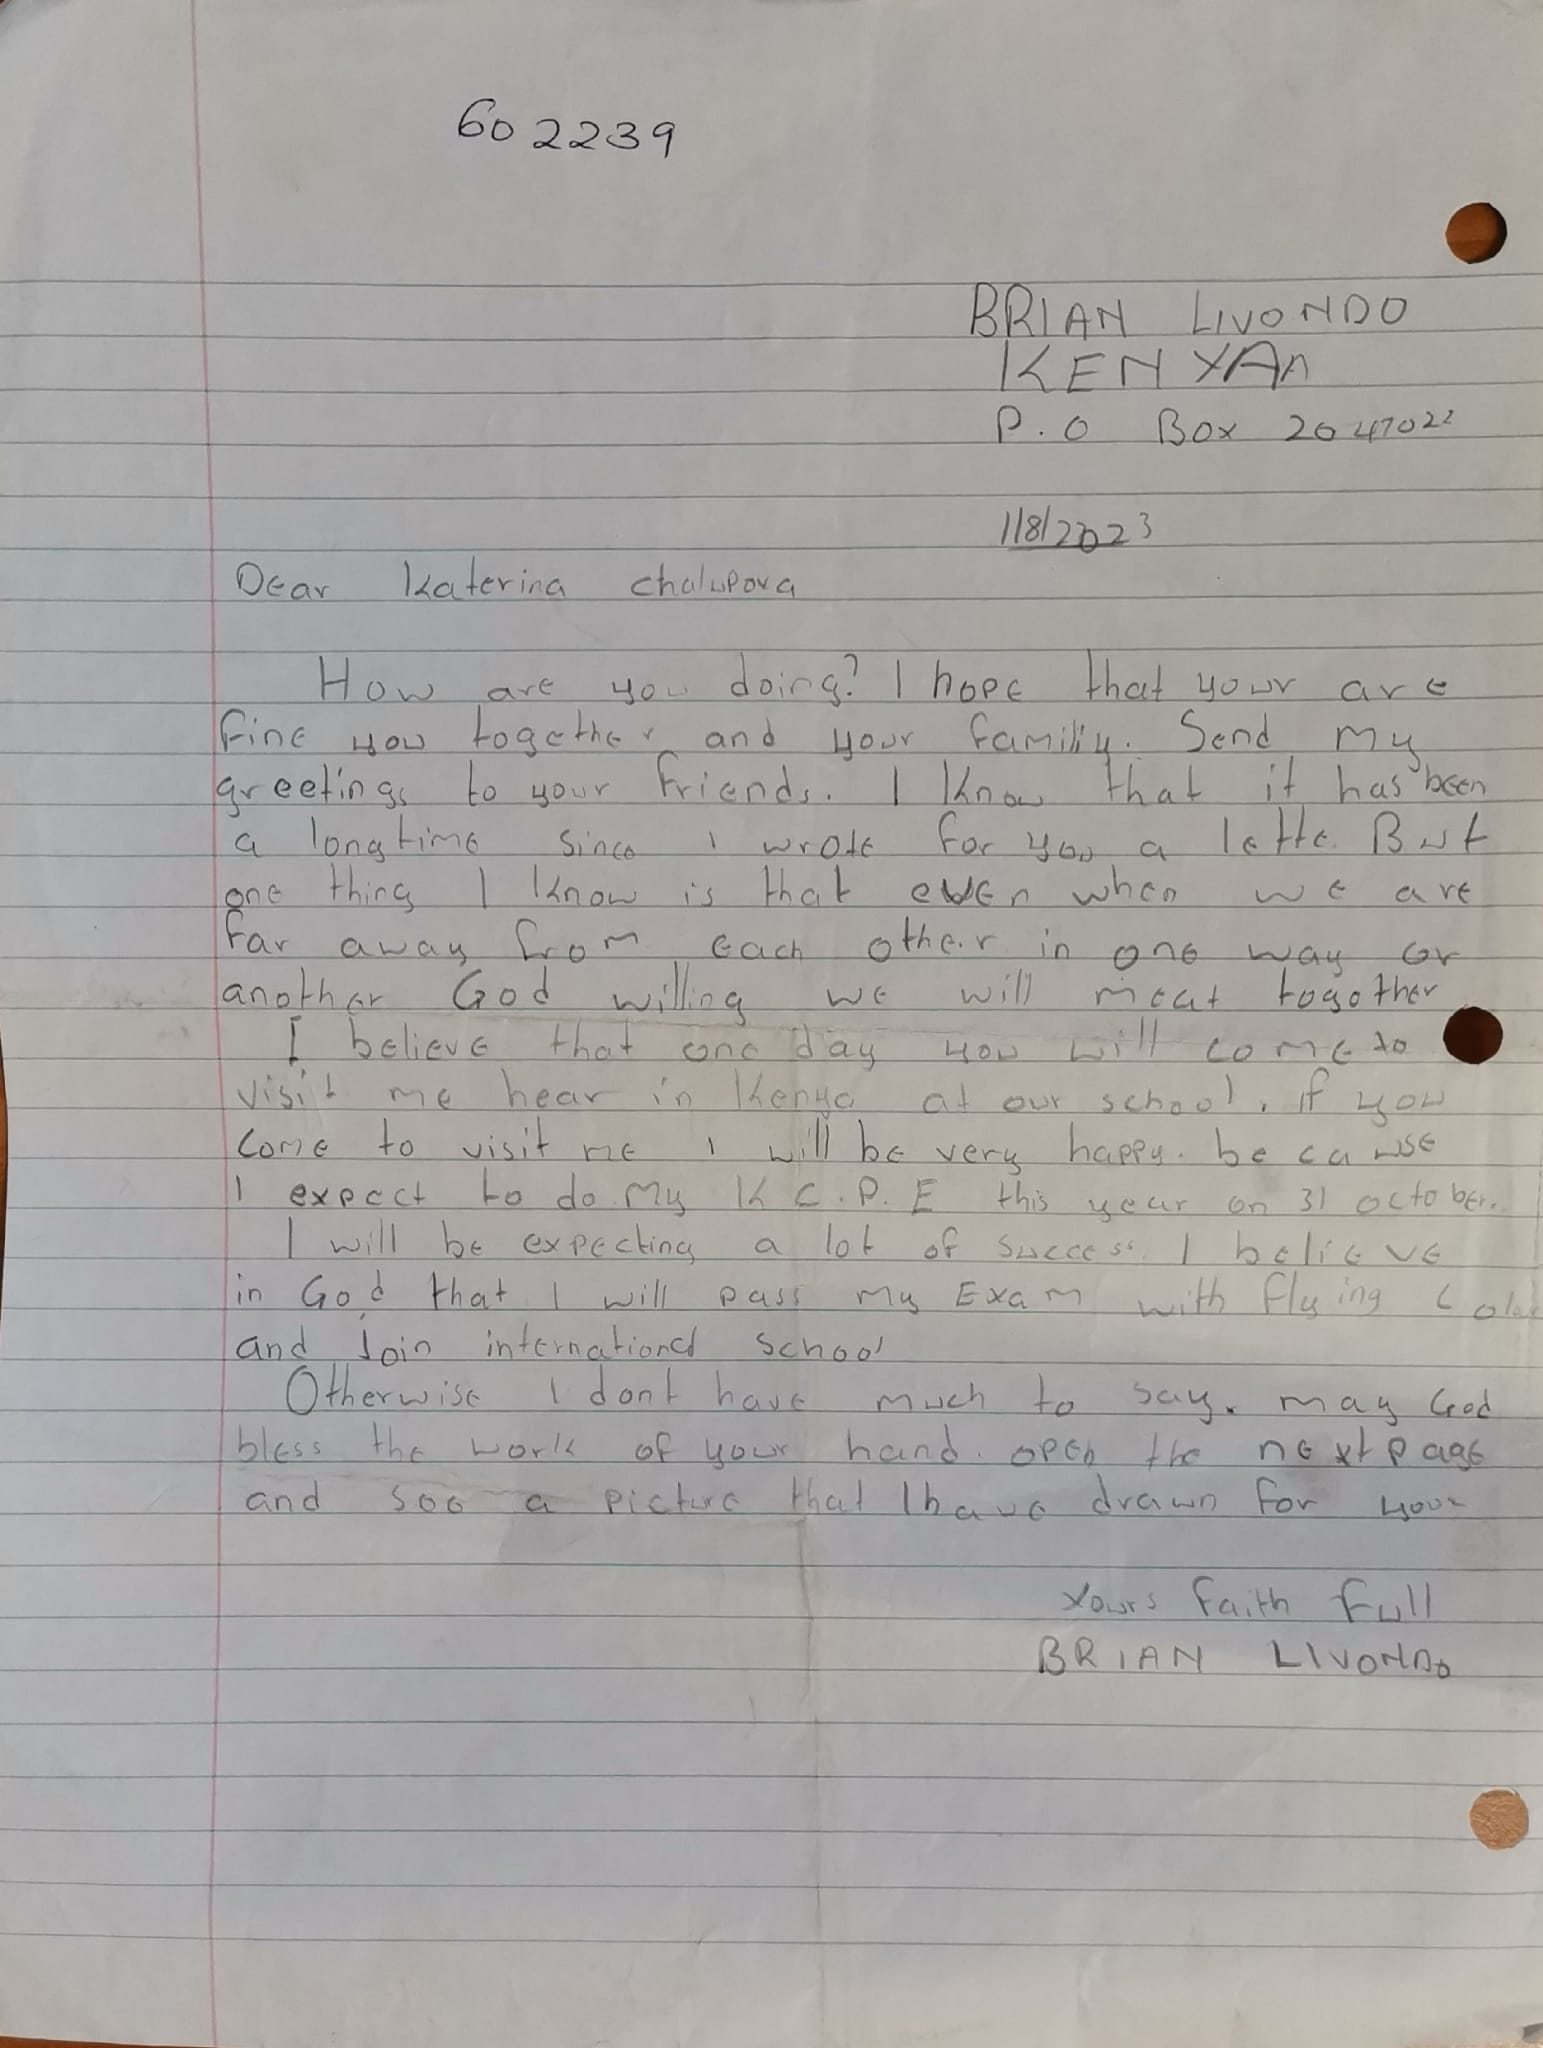 602239
BRIAN LIVONDO
KENYAN
P.O Box 2047022
1/8/2023
Dear Katerina chalupova
How are you doing? I hope that your are
fine you together and your familiy. Send my
greetings to your friends. I know that it has been
a longtime since I wrote for you a lette. But
one thing I know is that even when we are
far away from each other in one way or
another God willing we will meat together
I believe that one day you will come to
visit me hear in Kenya at our school. if you
come to visit me I will be very happy. because
I expect to do my K.C.P.E this year on 31 october.
I will be expecting a lot of success. I believe
in God that I will pass my Exam with flying
and Join international school
Otherwise I dont have much to say. may God
bless the work of your hand. open the next page
and see a picture that I have drawn for your
Yours faith full
BRIAN LIVONDO